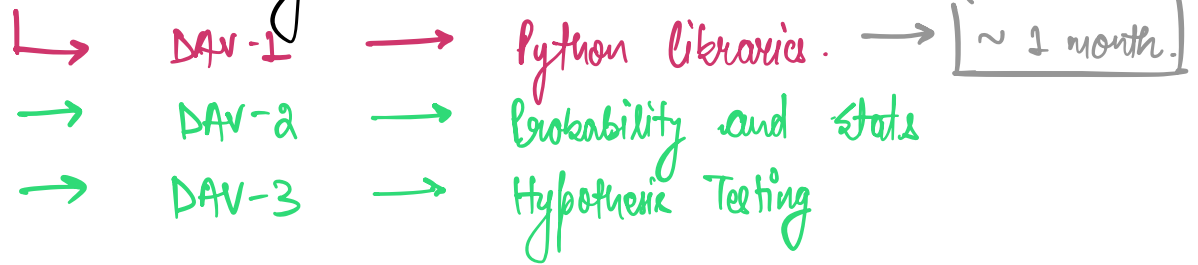 DAV-1 → Python libraries. → ~ 1 month.
→ DAV-2 → Probability and Stats
→ DAV-3 → Hypothesis Testing